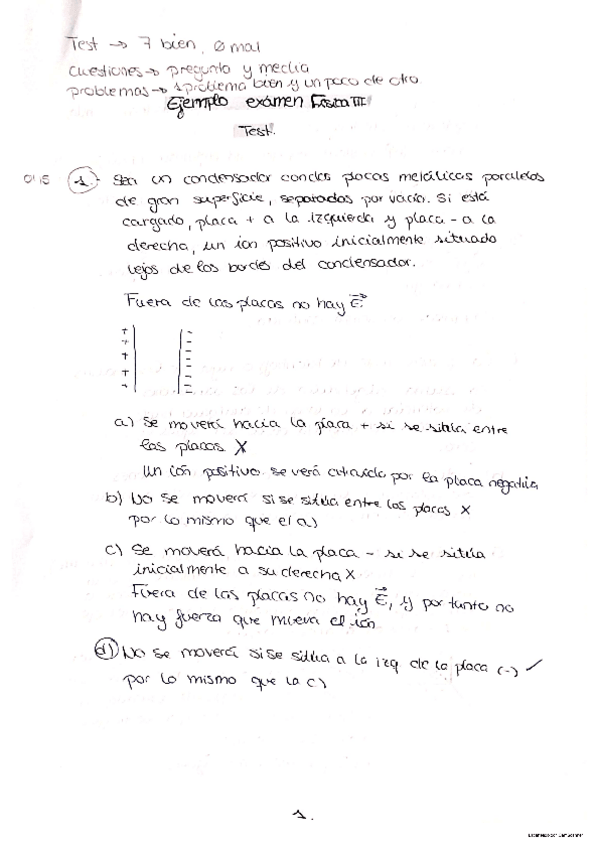 Test → 7 bien, 0 mal
Cuestiones → pregunta y media
problemas → 1 problema bien y un poco de otro
Ejemplo exámen Física III
Test.
0'15 1. Sea un condensador con dos placas metálicas paralelas
de gran superficie, separadas por vacío. Si está
cargado, placa + a la izquierda y placa - a la
derecha, un ion positivo inicialmente situado
lejos de los bordes del condensador.
Fuera de las placas no hay E⃗
+ -
+ -
+ -
+ -
+ -
a) Se moverá hacia la placa + si se sitúa entre
las placas X
Un ión positivo se verá atraido por la placa negativa
b) No se moverá si se sitúa entre las placas X
por lo mismo que el a)
c) Se moverá hacia la placa - si se sitúa
inicialmente a su derecha X
Fuera de las placas no hay E⃗, y por tanto no
hay fuerza que mueva el ión
d) No se moverá si se sitúa a la izq de la placa (-) ✓
por lo mismo que la c)
1.
Escaneado con CamScanner